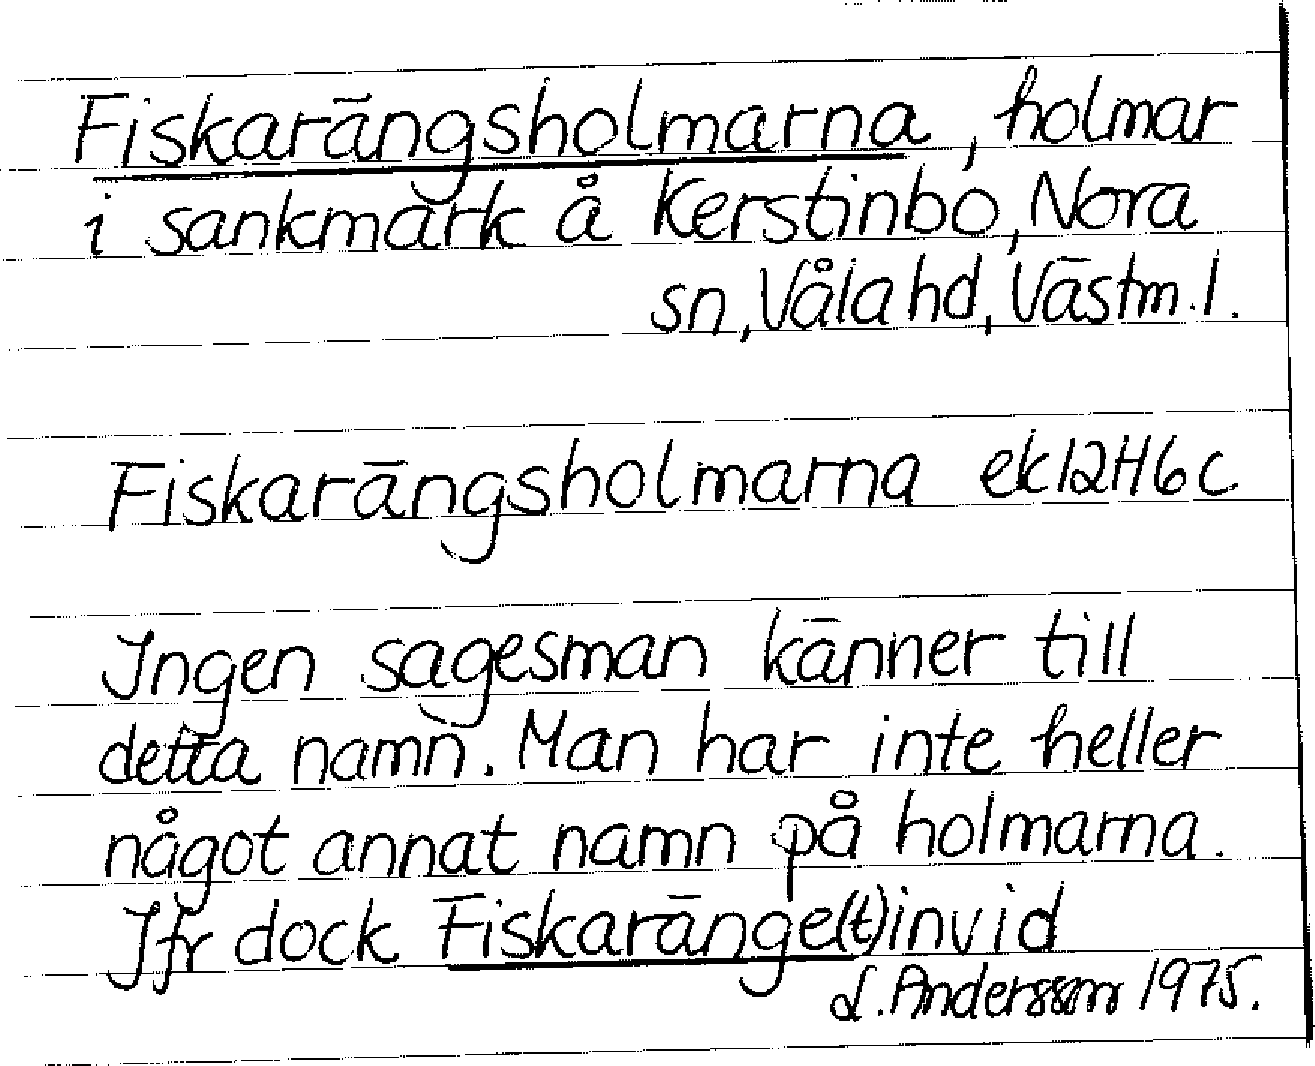 Fiskarängsholmarna, holmar
i sankmark å Kerstinbo, Nora
sn, Våla hd, Västm. l.
Fiskarängsholmarna ek 12H6c
Ingen sagesman känner till
detta namn. Man har inte heller
något annat namn på holmarna.
Jfr dock Fiskaränge(t) invid
L. Andersson 1975.